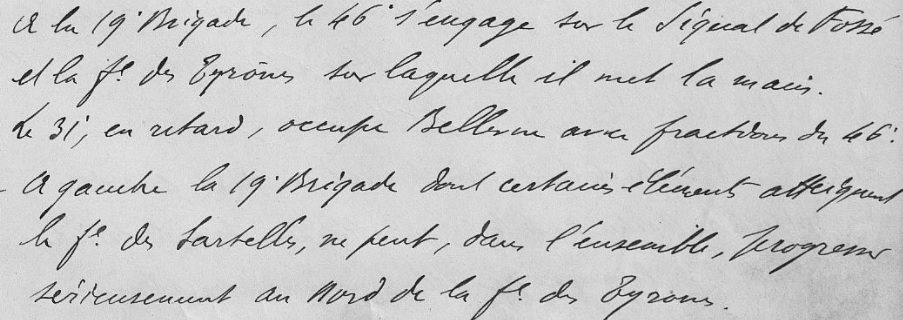 A la 19e Brigade, le 46e s'engage sur le Signal de Fossé
et la fe des Eyrônes sur laquelle il met la main.
Le 31e, en retard, occupe avec fractions du 46e.
- A gauche la 19e Brigade dont certains éléments atteignent
la fe des Sartelles, ne peut, dans l'ensemble, progresser
sérieusement au Nord de la fe des Eyrones.